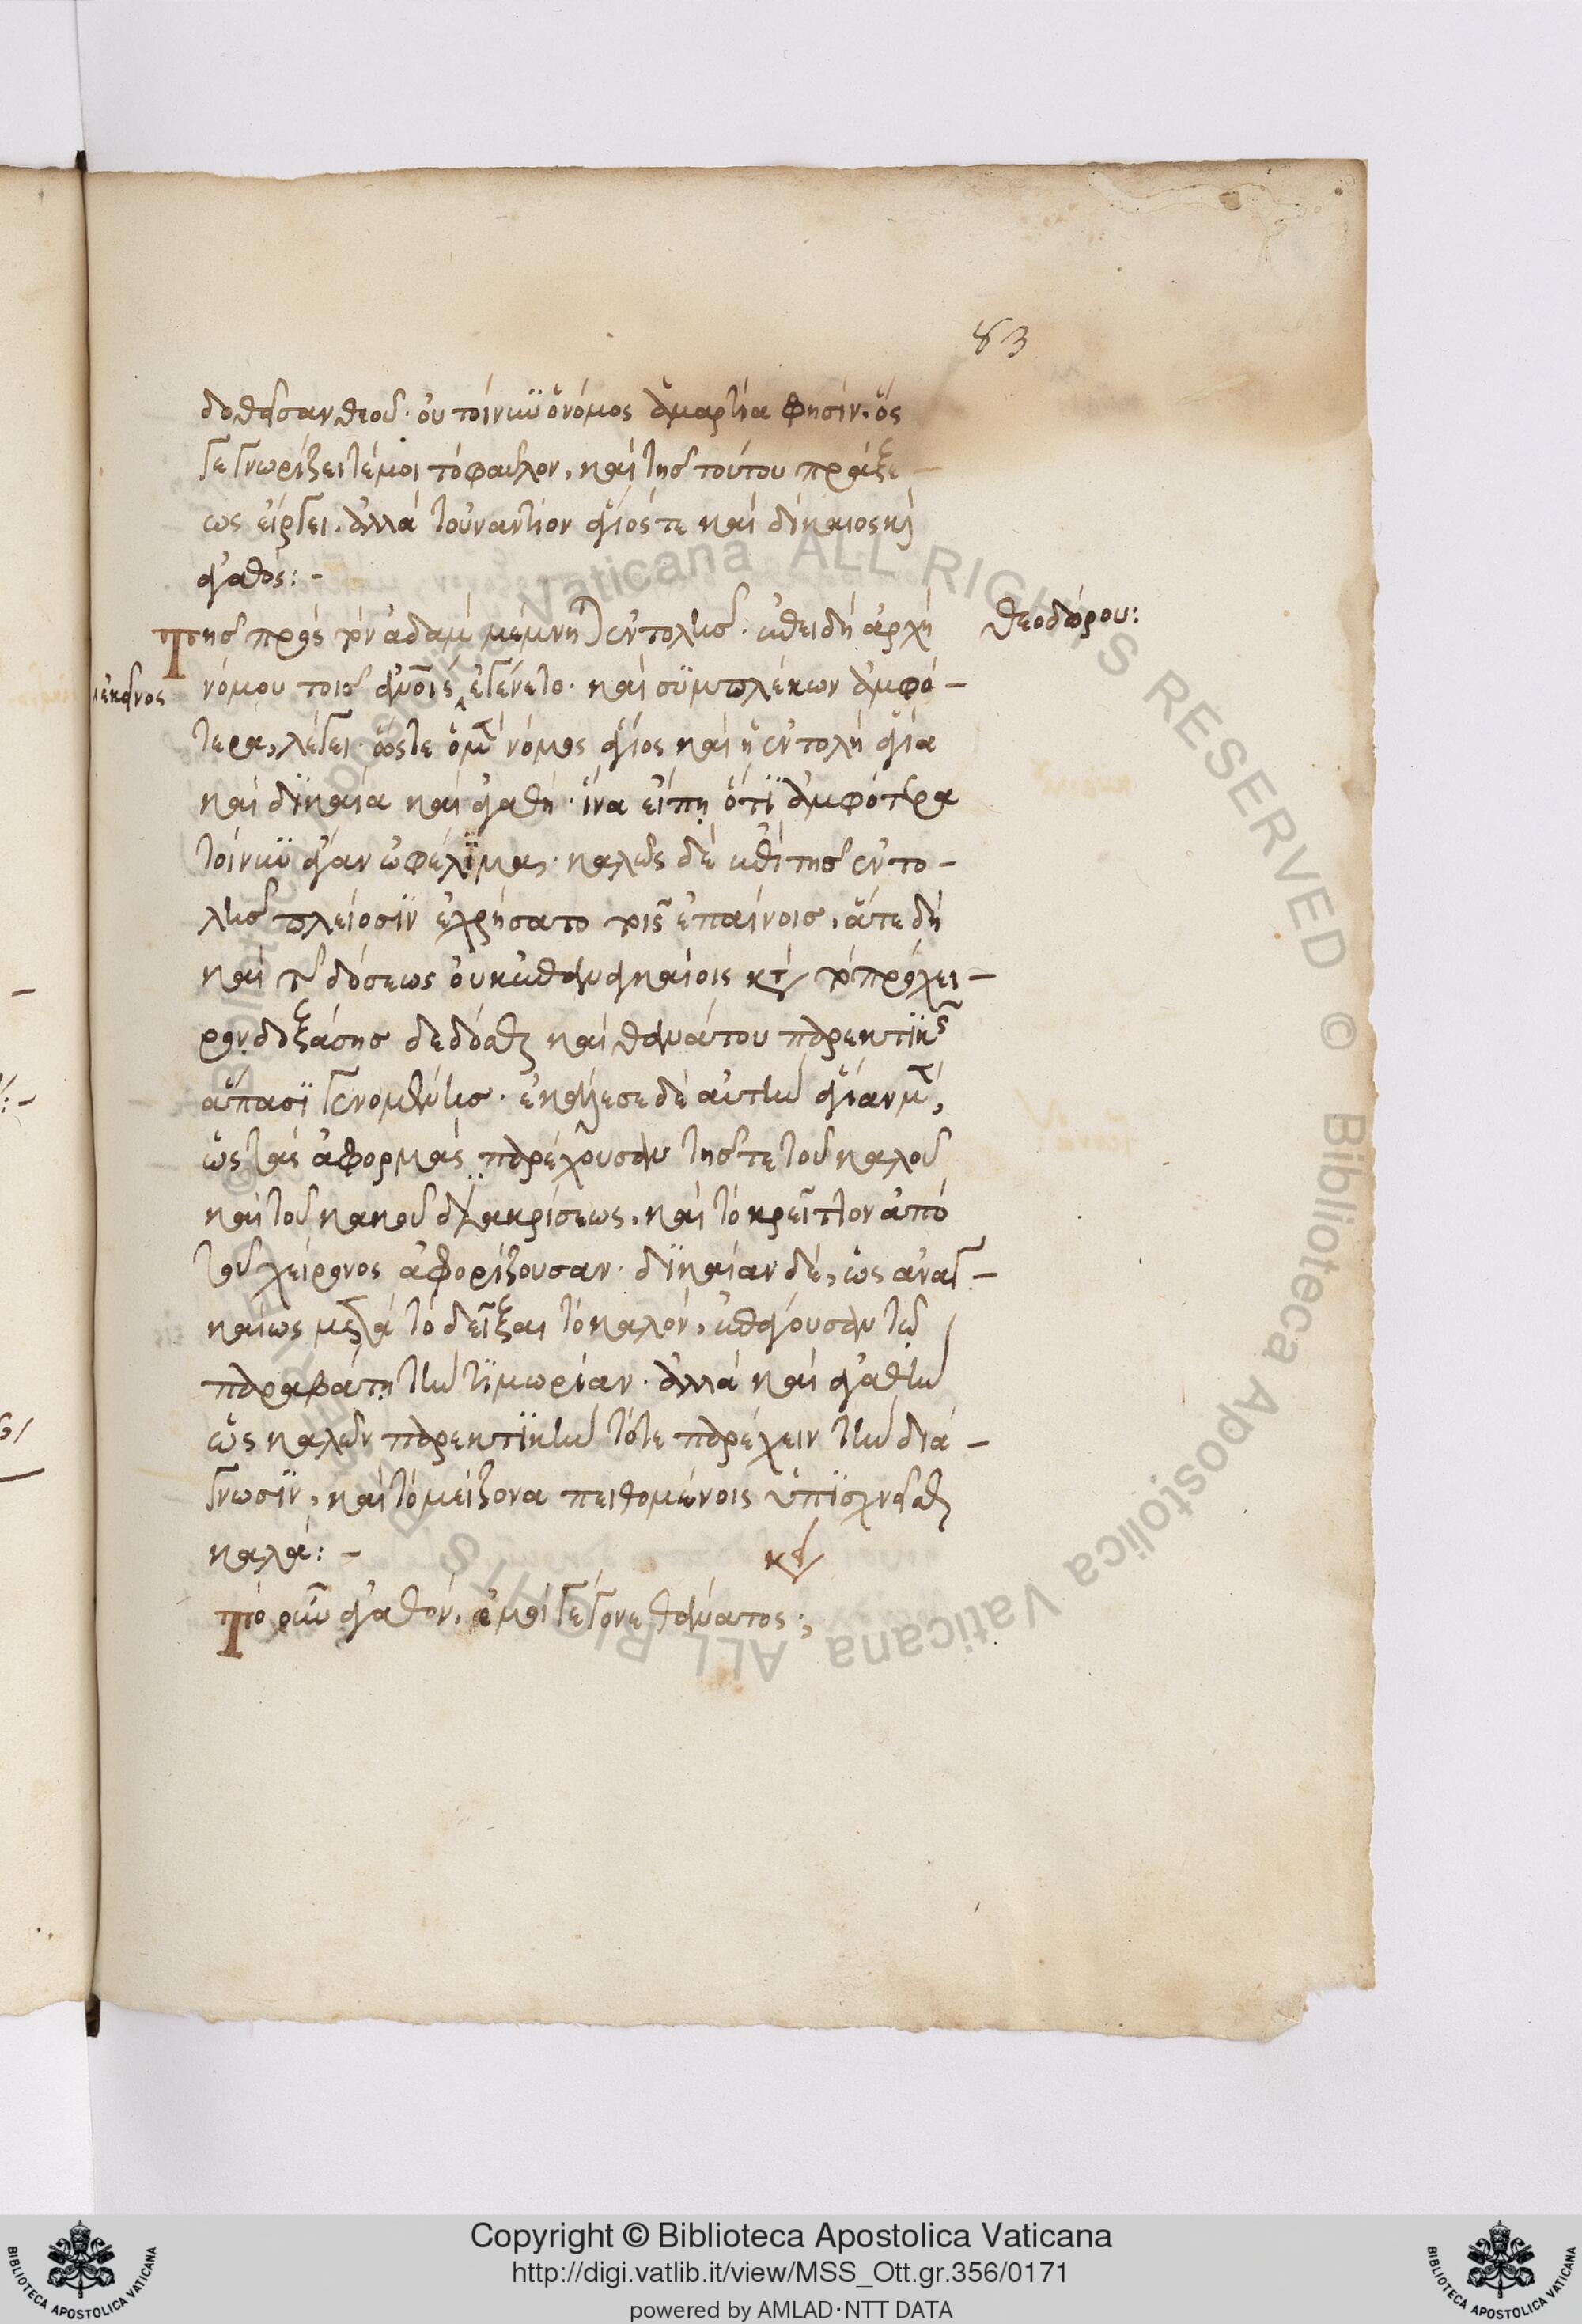 83
δοθεῖσαν θεοῦ. οὐ τοίνυν ὁ νόμος ἁμαρτία φησίν. ὅς
γε γνωρίζει τέ μοι τὸ φαῦλον, καὶ τῆς τούτου πράξε-
ως εἴργει. ἀλλὰ τοὐναντίον ἅγιός τε καὶ δίκαιος καὶ
ἀγαθός:-
Τῆς πρὸς τὸν ἀδὰμ μέμνηται ἐντολῆς. ἐπειδὴ ἀρχὴ
θεοδώρου:
νόμου τοῖς ἀνθρώποις ἐγένετο. καὶ συμπλέκων ἀμφό-
ἐκεῖνος
τερα, λέγει. ὥστε ὁ μὲν νόμος ἅγιος καὶ ἡ ἐντολὴ ἁγία
καὶ δικαία καὶ ἀγαθή. ἵνα εἴπῃ ὅτι ἀμφότερα
τοίνυν ἄγαν ὠφέλιμα, καλῶς δὲ ἐπὶ τῆς ἐντο-
λῆς πλείοσιν ἐχρήσατο τοῖς ἐπαίνοις, ἅτε δὴ
καὶ τῆς δόσεως οὐκ ἐπαναγκαίοις κατὰ τὸ πρόχει-
ρον δοξάσης δεδόσθαι καὶ θανάτου παρεκτικῆς
ἅπασι γενομένης. ἐκάλεσε δὲ αὐτὴν ἁγίαν μὲν,
ὡς τὰς ἀφορμὰς παρέχουσαν τῆς τε τοῦ καλοῦ
καὶ τοῦ κακοῦ διακρίσεως, καὶ τὸ κρεῖττον ἀπὸ
τοῦ χείρονος ἀφορίζουσαν. δικαίαν δὲ, ὡς ἀναγ-
καίως μετὰ τὸ δεῖξαι τὸ καλόν, ἐπάγουσαν τῷ
παραβάτῃ τὴν τιμωρίαν. ἀλλὰ καὶ ἀγαθὴν
ὡς καλῶν παρεκτικὴν τότε παρέχειν τὴν διά-
γνωσιν, καὶ τὸ μείζονα πειθομένοις ὑπισχνεῖσθαι
καλά:-
κείμενον
Τὸ οὖν ἀγαθόν, ἐμοὶ γέγονε θάνατος;
Copyright © Biblioteca Apostolica Vaticana
http://digi.vatlib.it/view/MSS_Ott.gr.356/0171
powered by AMLAD·NTT DATA
BIBLIOTECA APOSTOLICA VATICANA
BIBLIOTECA APOSTOLICA VATICANA
Biblioteca Apostolica Vaticana ALL RIGHTS RESERVED © Biblioteca Apostolica Vaticana ALL RIGHTS RESERVED ©